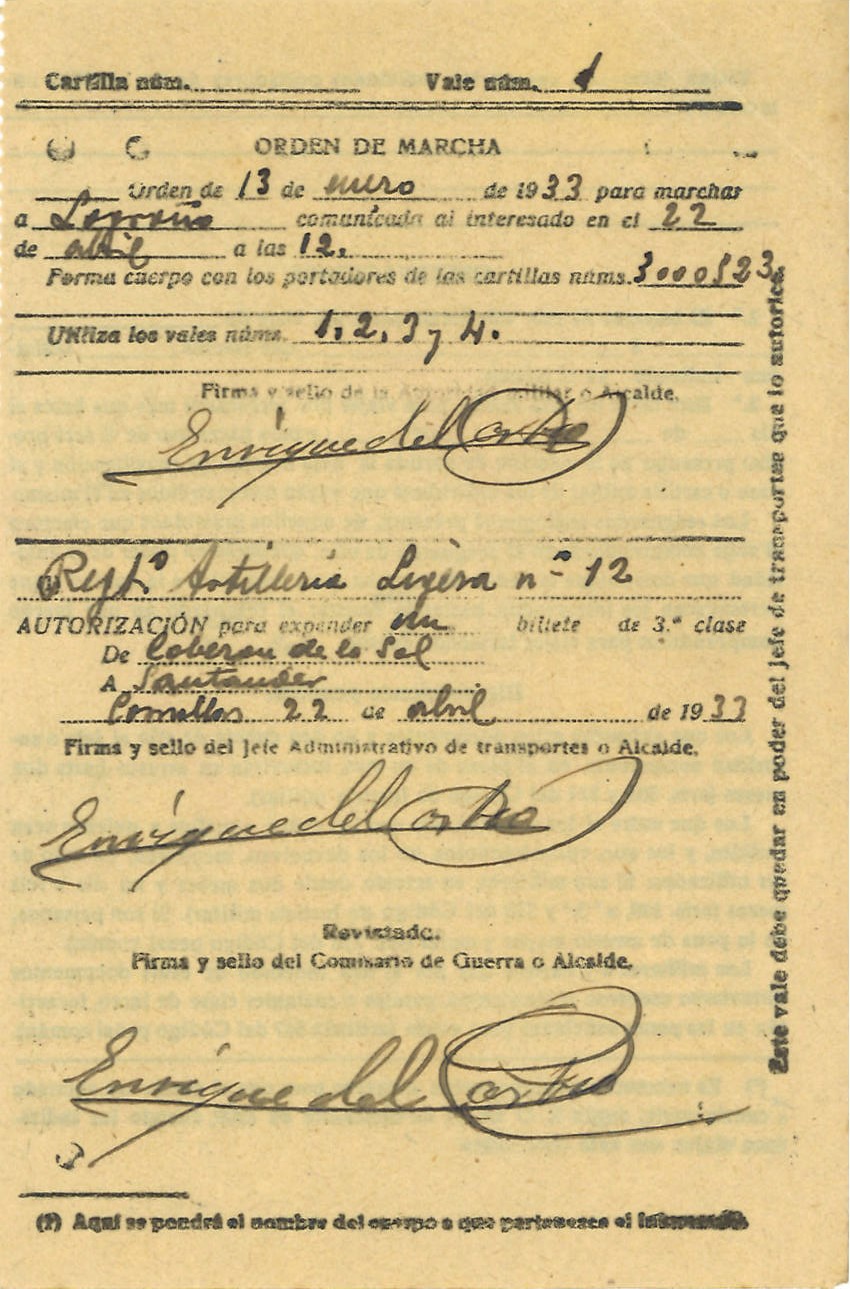 Cartilla núm. Vale núm. 1
ORDEN DE MARCHA
Orden de 13 de enero de 1933 para marchar
a Logroño comunicada al interesado en el 22
de abril a las 12.
Forma cuerpo con los portadores de las cartillas núms. 3000523
Utiliza los vales núms. 1, 2, 3 y 4.
Firma y sello de la Autoridad militar o Alcalde.
Enrique del
Regt.º Artillería Ligera nº 12
AUTORIZACIÓN para expender un billete de 3.ª clase
De de la Sal
A Santander
Comillas 22 de abril de 1933
Firma y sello del Jefe Administrativo de transportes o Alcalde.
Enrique del
Revistado.
Firma y sello del Comisario de Guerra o Alcalde.
Enrique del
(1) Aquí se pondrá el nombre del cuerpo a que pertenezca el
Este vale debe quedar en poder del jefe de transportes que lo autorice